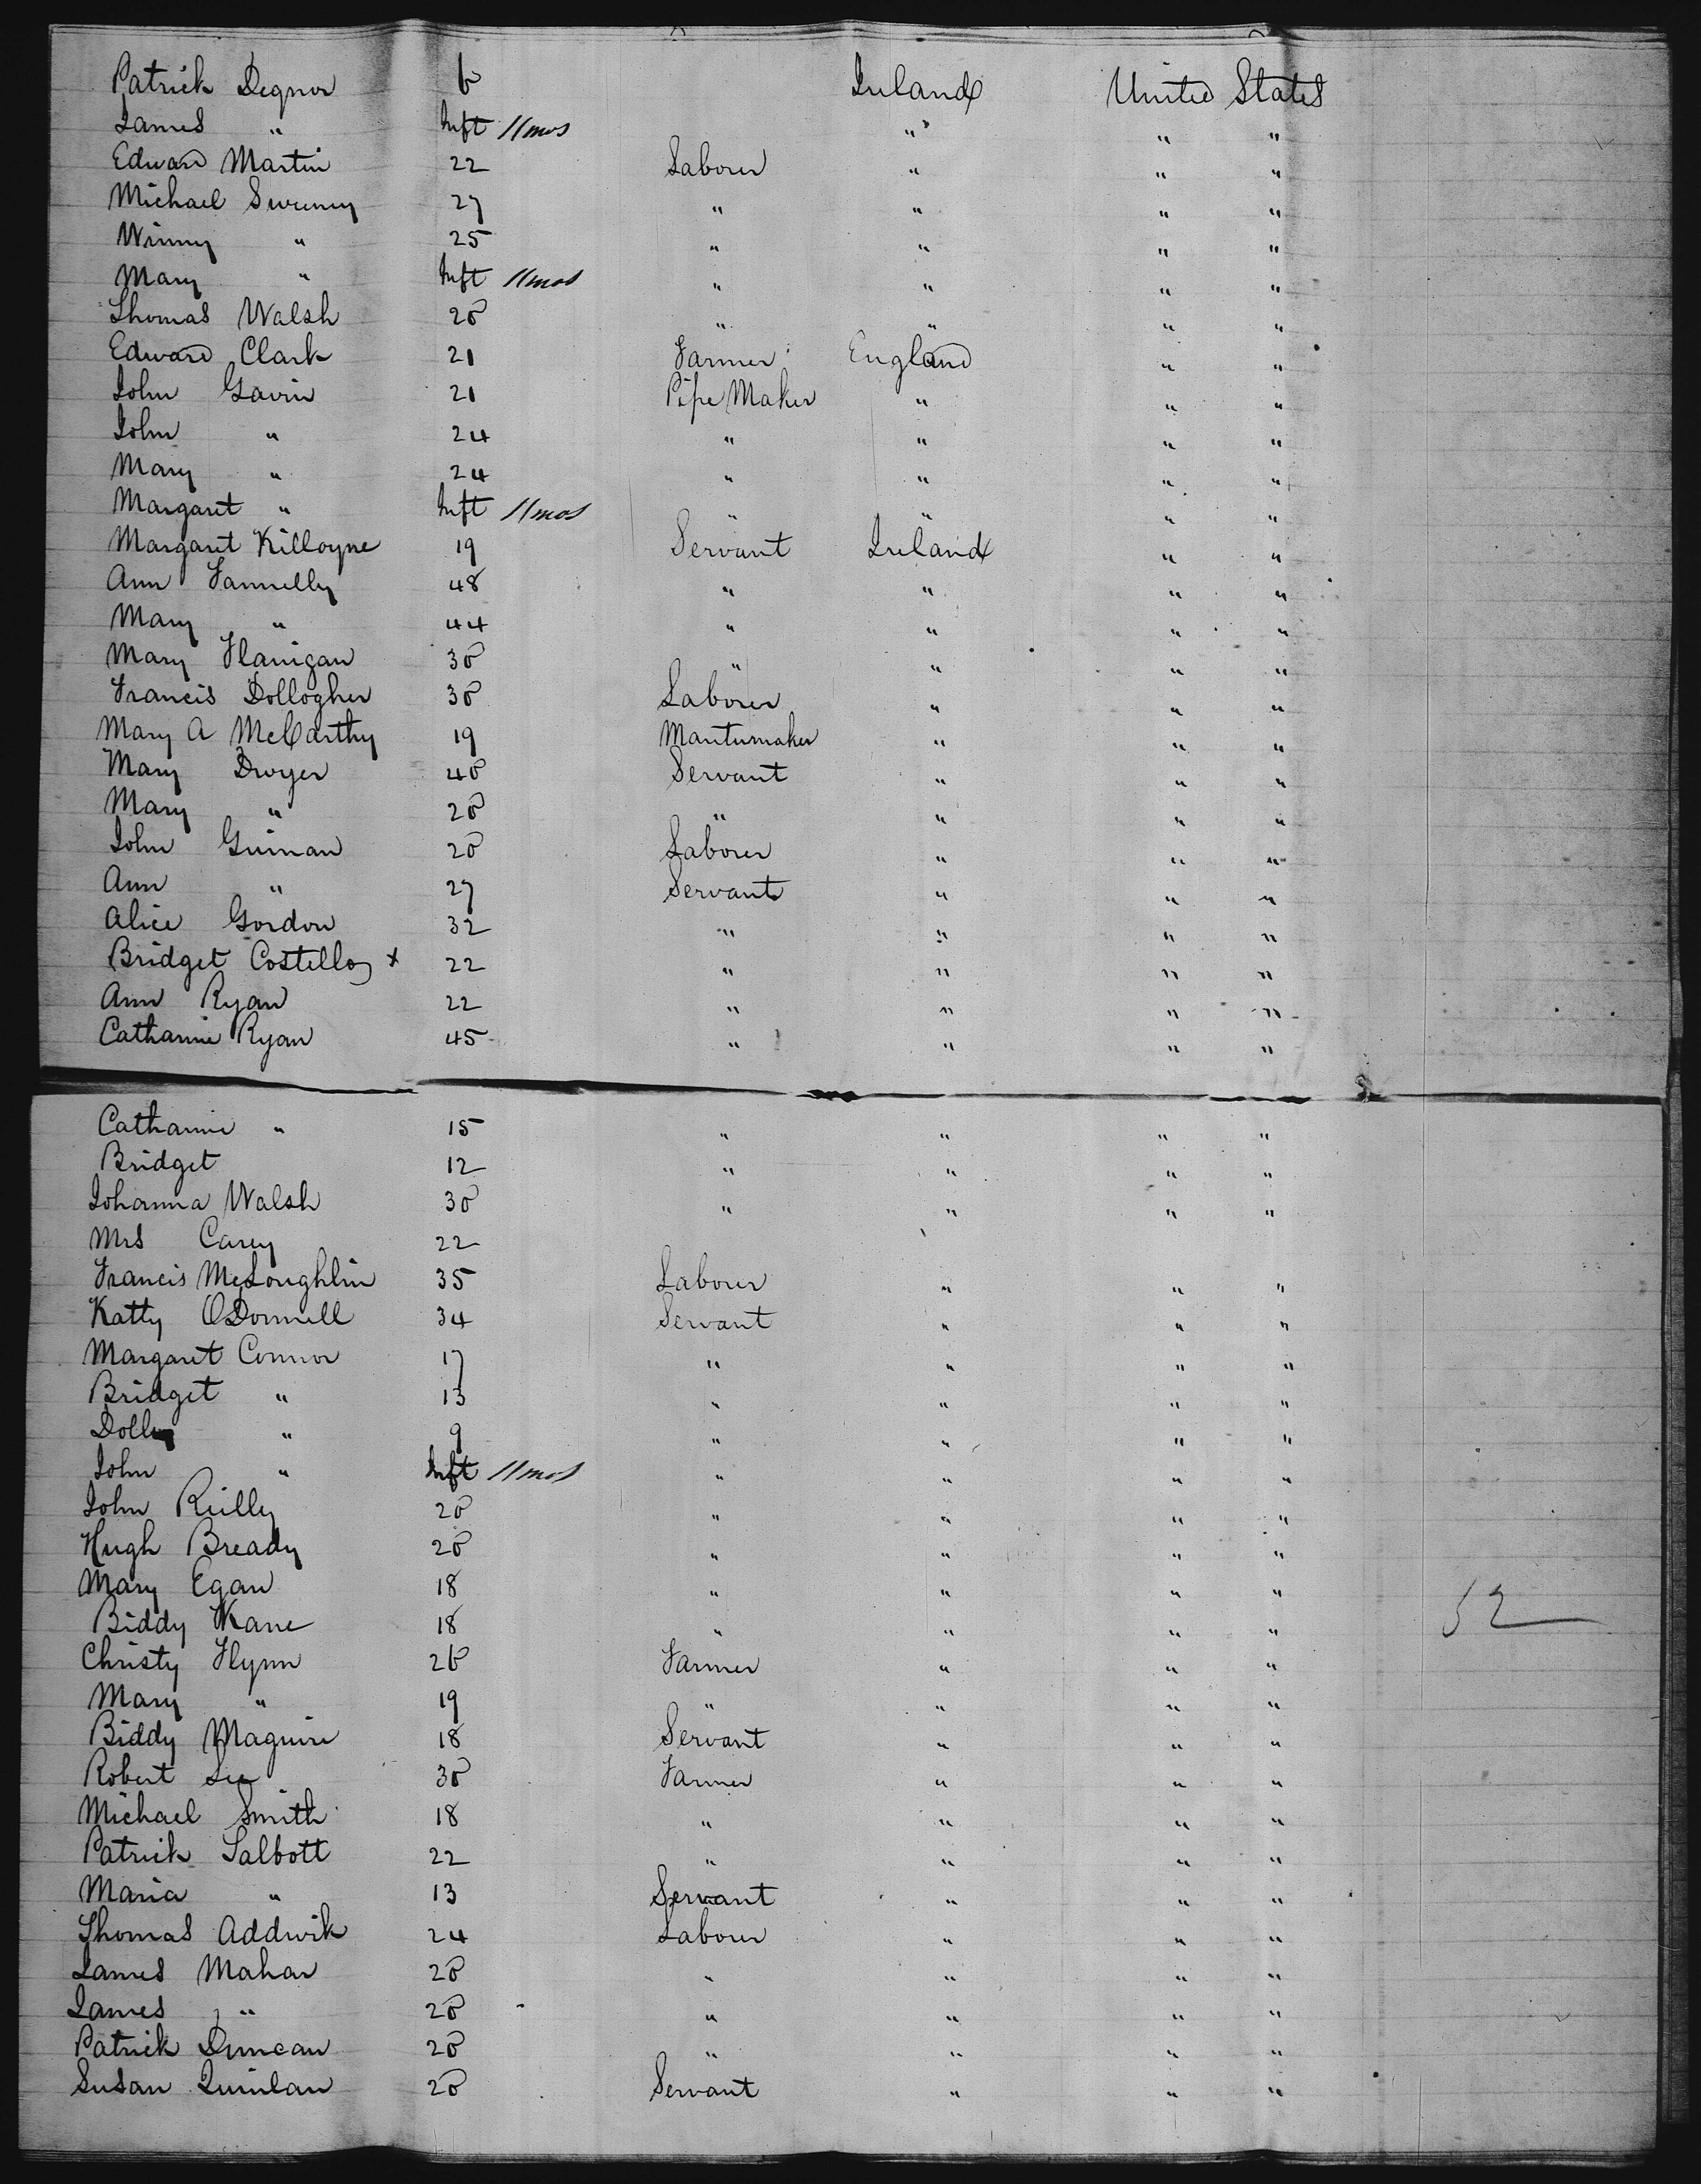 Patrick Degnor 6 Ireland United States
James " Inft 11mos " " "
Edward Martin 22 Laborer " " "
Michael Sweeney 27 " " " "
Winny " 25 " " " "
Mary " Inft 11mos " " " "
Thomas Walsh 20 " " " "
Edward Clark 21 Farmer England " "
John Gavin 21 Pipe Maker " " "
John " 24 " " " "
Mary " 24 " " " "
Margaret " Inft 11mos " " " "
Margaret Killoyne 19 Servant Ireland " "
Ann Fannelly 48 " " " "
Mary " 44 " " " "
Mary Flanigan 30 " " " "
Francis Dollogher 30 Laborer " " "
Mary A McCarthy 19 Mantumaker " " "
Mary Dwyer 40 Servant " " "
Mary " 20 " " " "
John Guinan 20 Laborer " " "
Ann " 27 Servant " " "
Alice Gordon 32 " " " "
Bridget Costelloy x 22 " " " "
Ann Ryan 22 " " " "
Catharine Ryan 45 " " " "
Catharine " 15 " " " "
Bridget 12 " " " "
Johanna Walsh 30 " " " "
Mrs Carey 22
Francis McLoughlin 35 Laborer " " "
Katty ODonnell 34 Servant " " "
Margaret Connor 17 " " " "
Bridget " 13 " " " "
Dolly " 9 " " " "
John " Inft 11mos " " " "
John Reilly 20 " " " "
Hugh Bready 20 " " " "
Mary Egan 18 " " " "
Biddy Kane 18 " " " " 52
Christy Flynn 26 Farmer " " "
Mary " 19 " " " "
Biddy Maguire 18 Servant " " "
Robert Lee 30 Farmer " " "
Michael Smith 18 " " " "
Patrick Talbott 22 " " " "
Maria " 13 Servant " " "
Thomas Addwik 24 Laborer " " "
James Mahar 20 " " " "
James " 20 " " " "
Patrick Duncan 20 " " " "
Susan Quinlan 20 Servant " " "